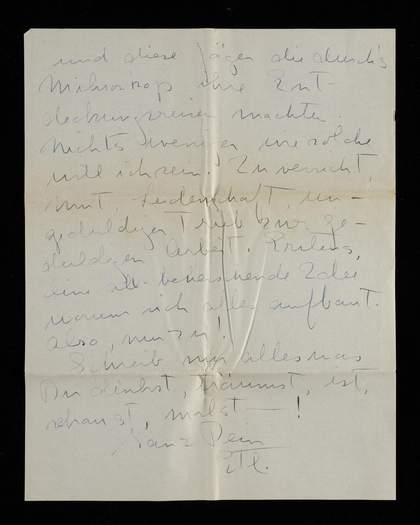 und diese Jäger die durch's
Mikroskop ihre Ent-
deckungsreisen machten.
Nichts weniger wie solche
will ich sein. Zu
mit Leidenschaft, un-
geduldigen Trieb zur ge-
duldigen Arbeit.
eine all-beherrschende Idee
worum sich alles aufbaut.
also, nun
Schreib mir alles was
Du denkst, träumst, ist,
schaust, malst — !
Ganz Dein